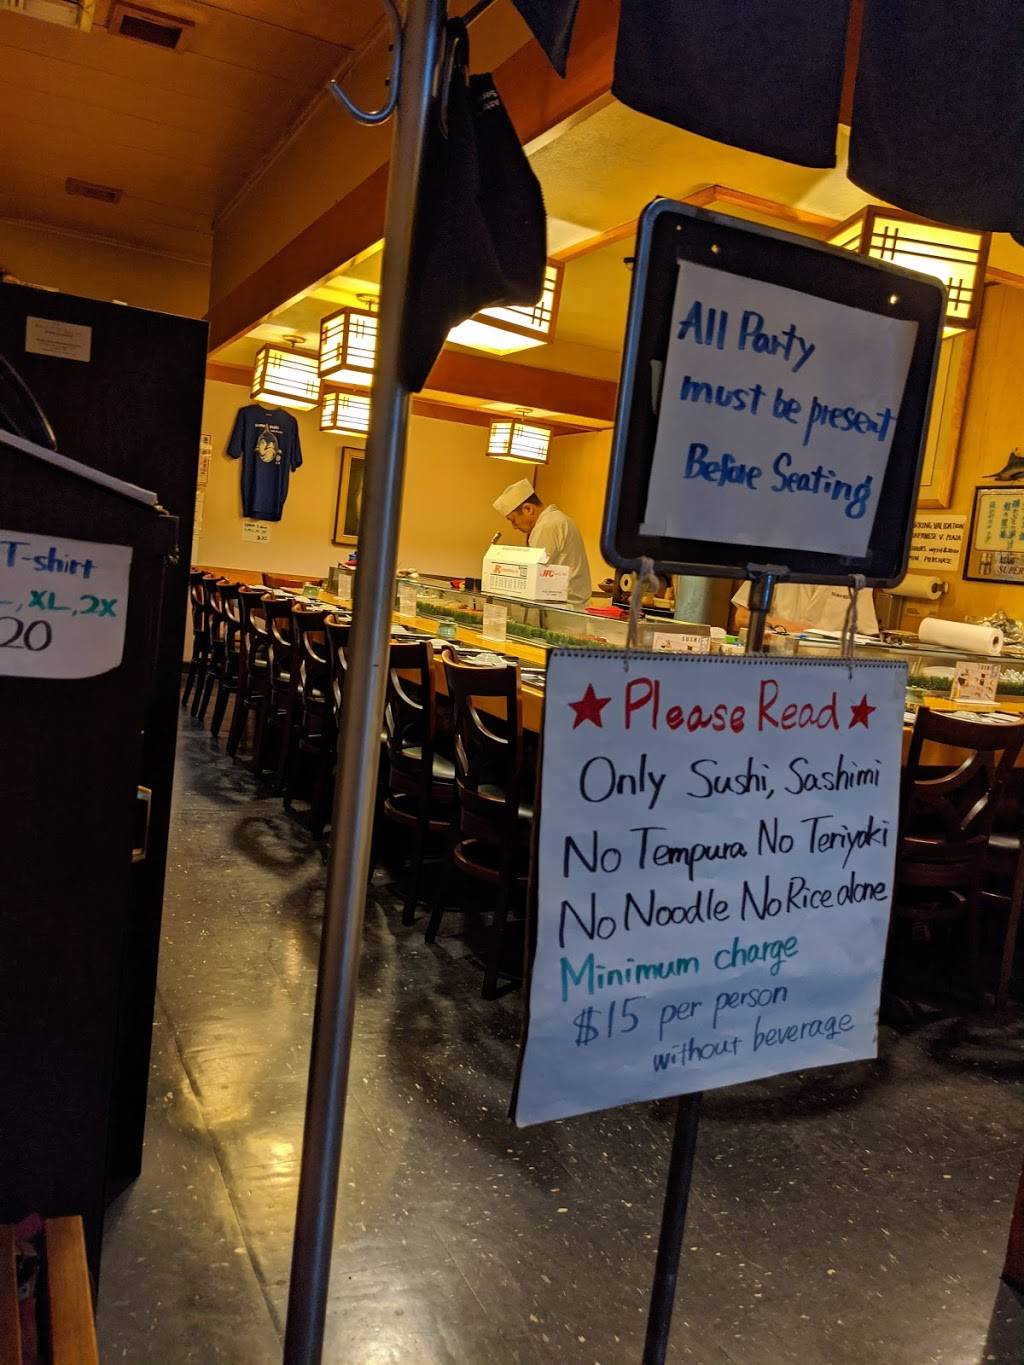 All Party
must be present
Before Seating
★ Please Read ★
Only Sushi, Sashimi
No Tempura No Teriyaki
No Noodle No Rice alone
Minimum charge
$15 per person
without beverage
T-shirt
L, XL, 2X
20
JFC
VALIDATION
PURCHASE
SUPER
SUSHI